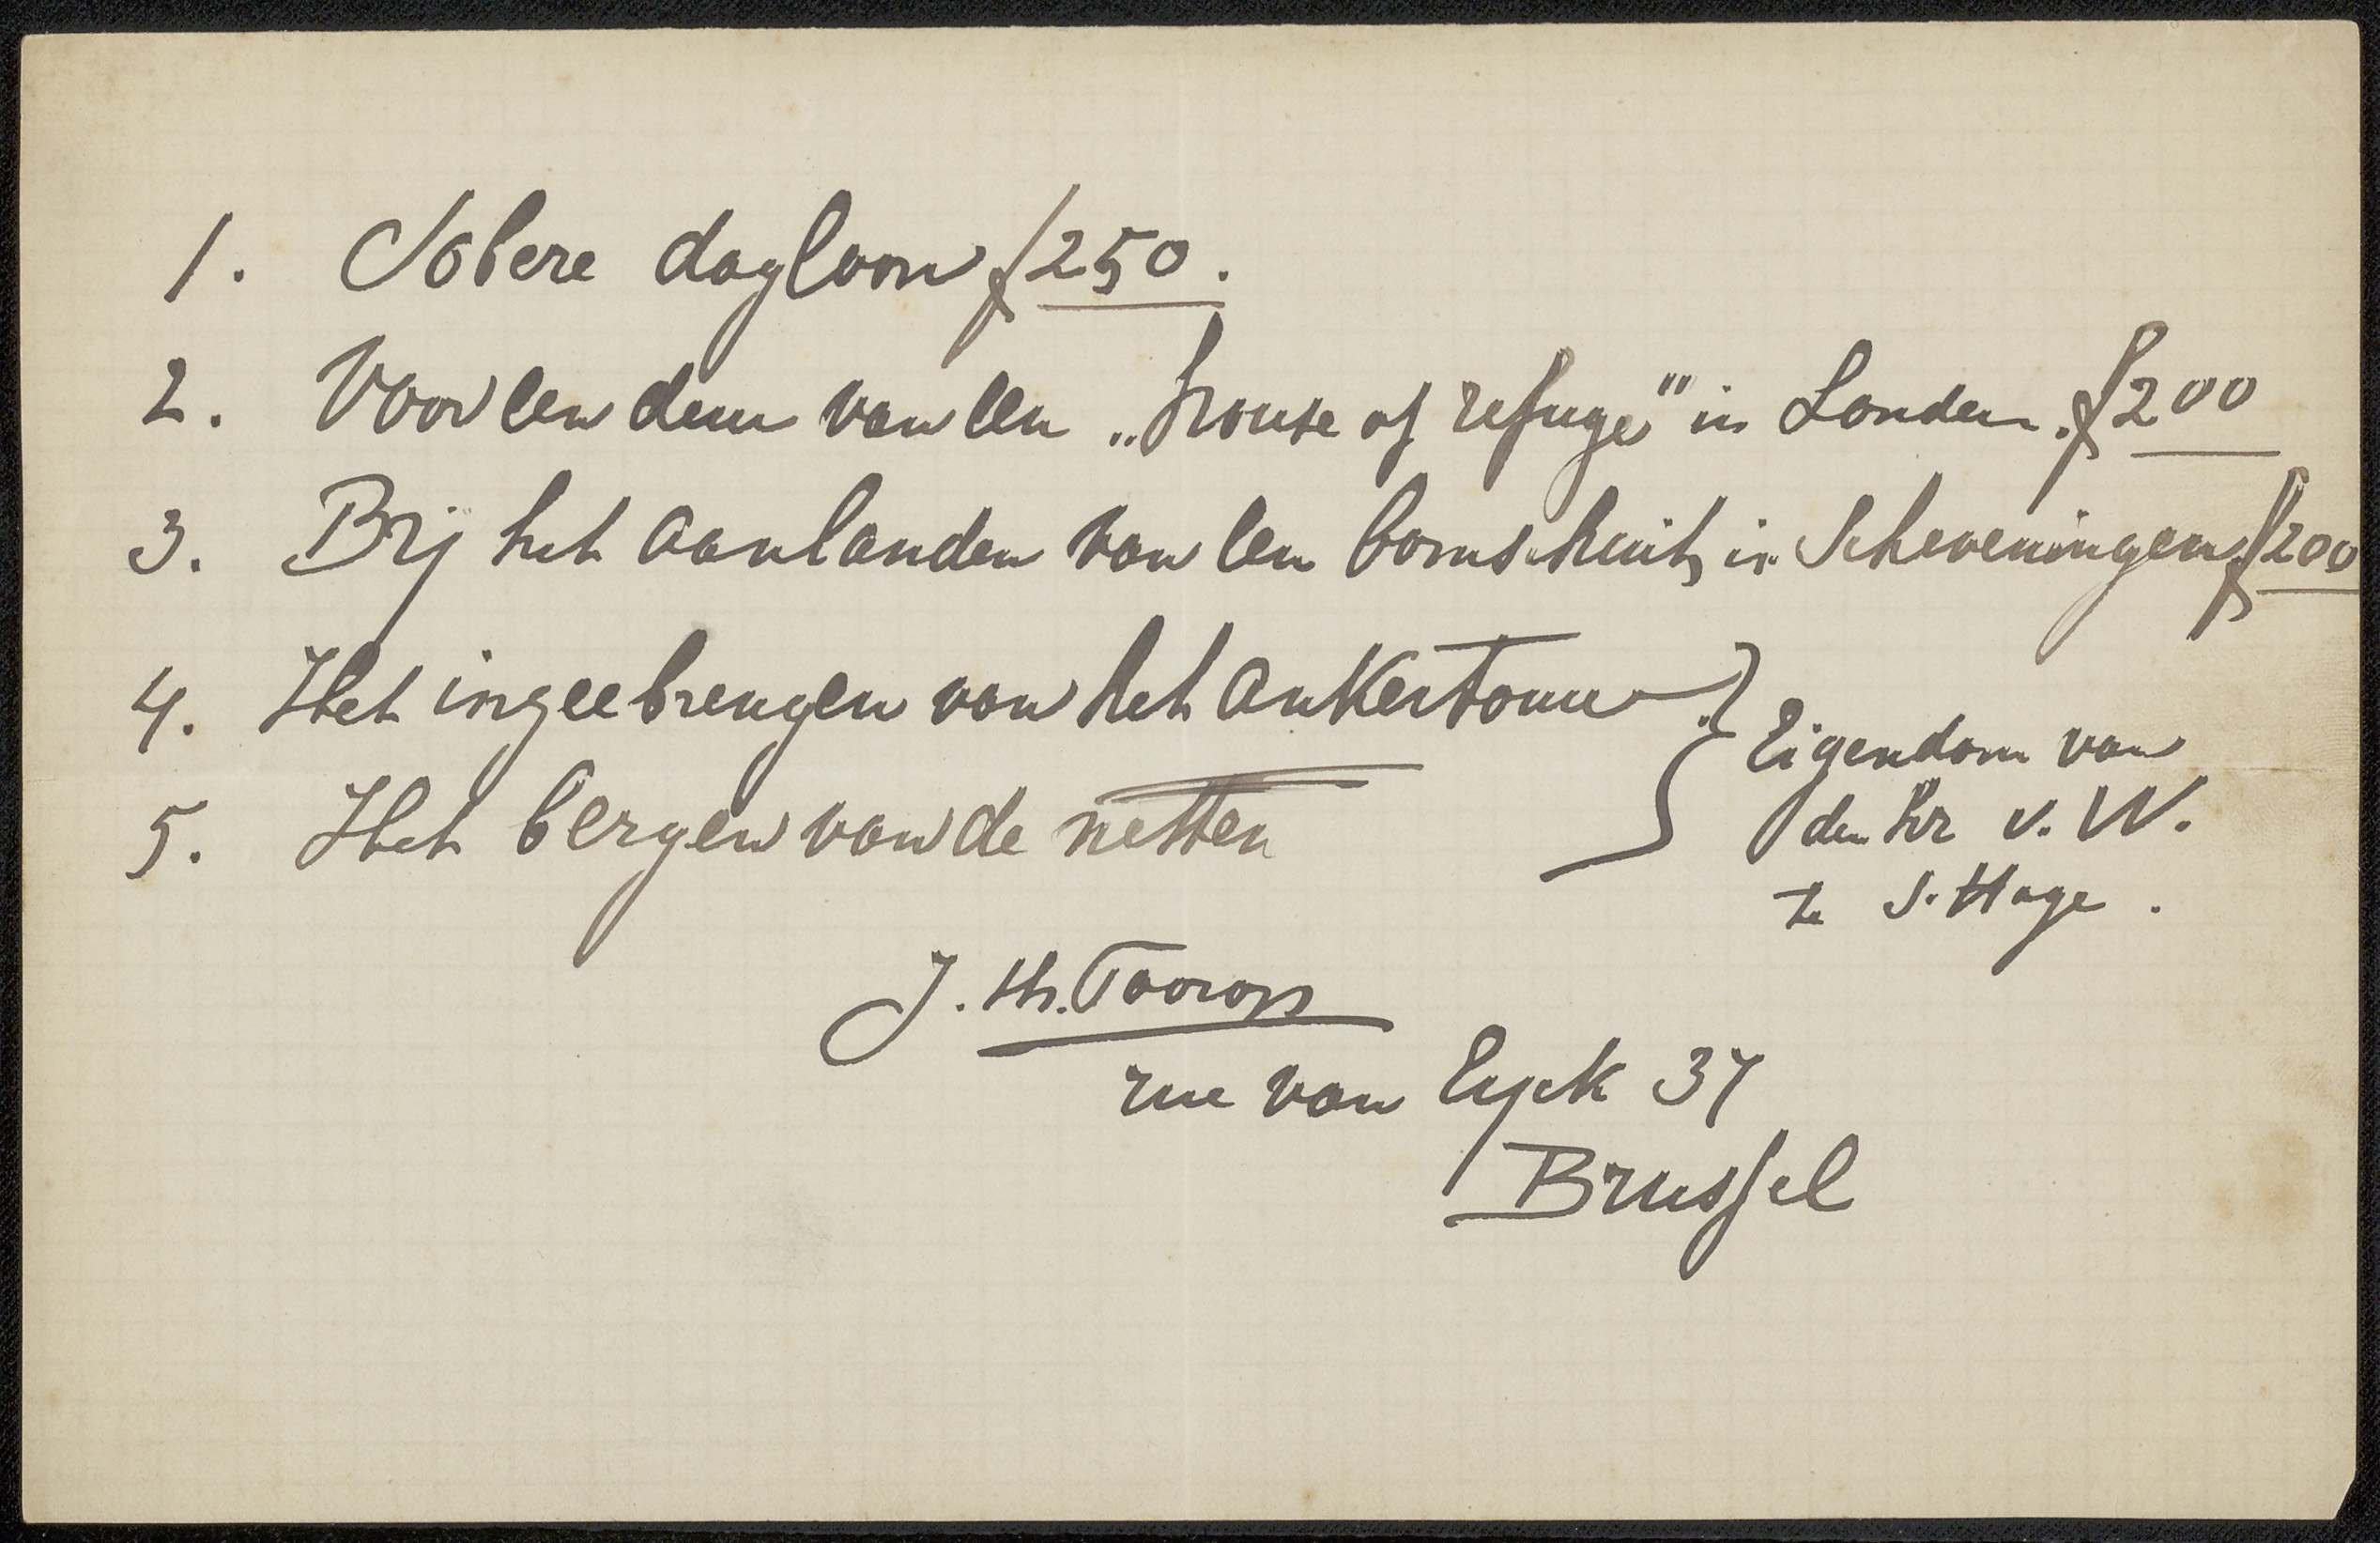 1. Sobere dagloon f 250.
2. Voor een deur van een „house of refuge" in Londen. f 200
3. Bij het aanlanden van een bomschuit, in Scheveningen f 200
4. Het inzee brengen van het ankertouw
5. Het bergen van de netten
Eigendom van
den Hr v. W.
te S. Hage.
J. Th. Toorop
rue van Eyck 37
Brussel